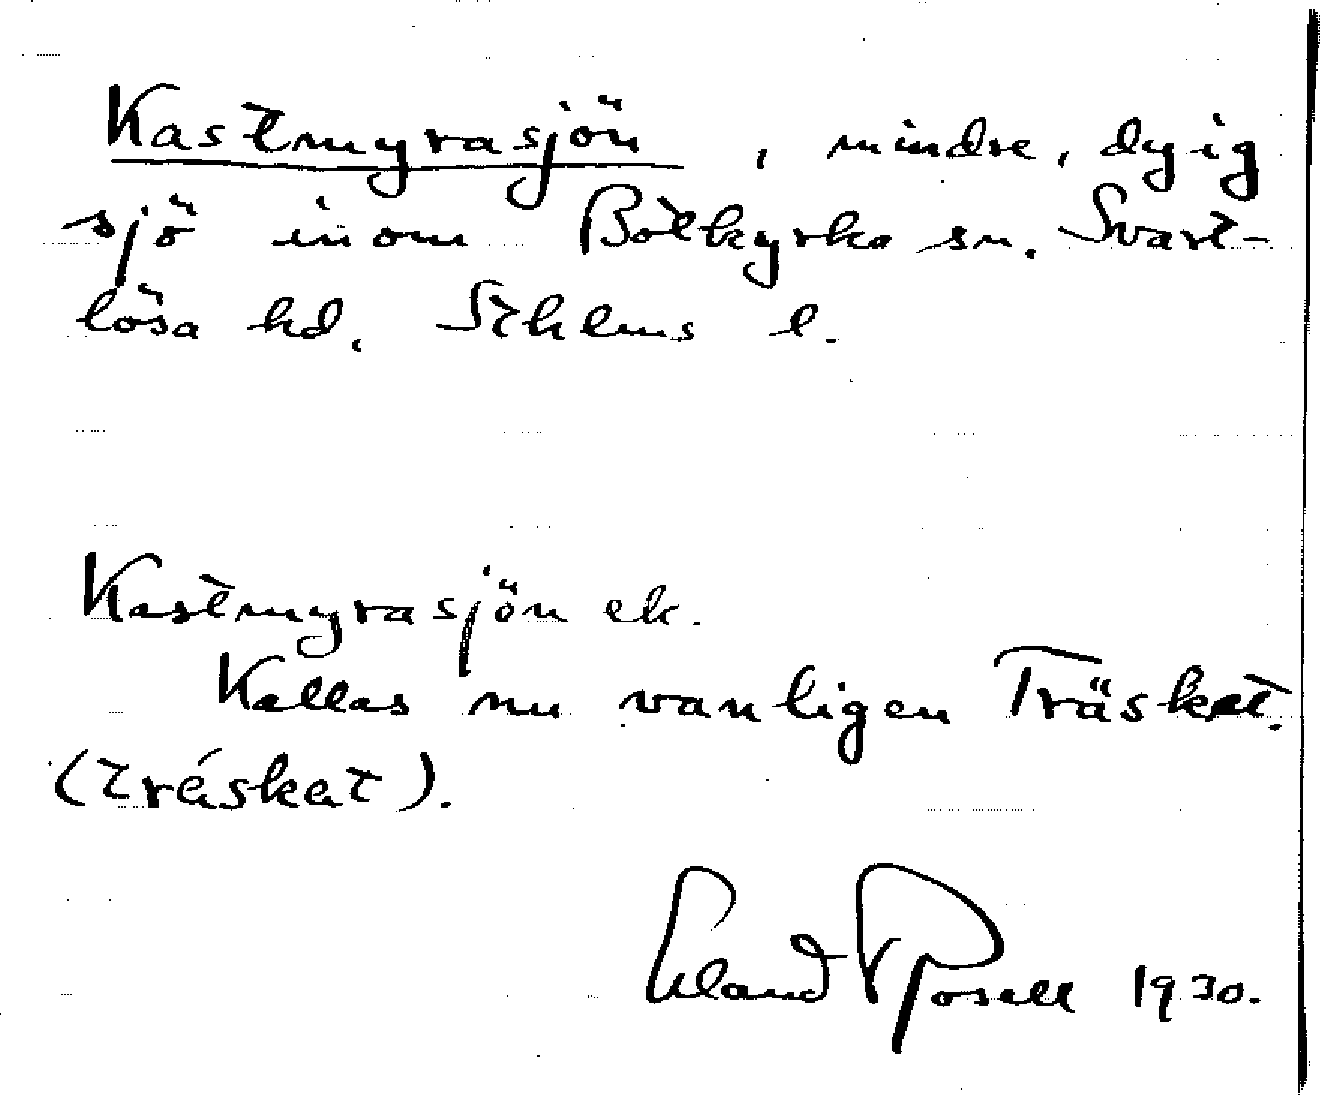 Kastmyrasjön, mindre, dyig
sjö inom Botkyrka sn. Svart-
lösa hd. Sthlms l.
Kastmyrasjön ek.
Kallas nu vanligen Träsket.
(tráskat).
Erland Rosell 1930.